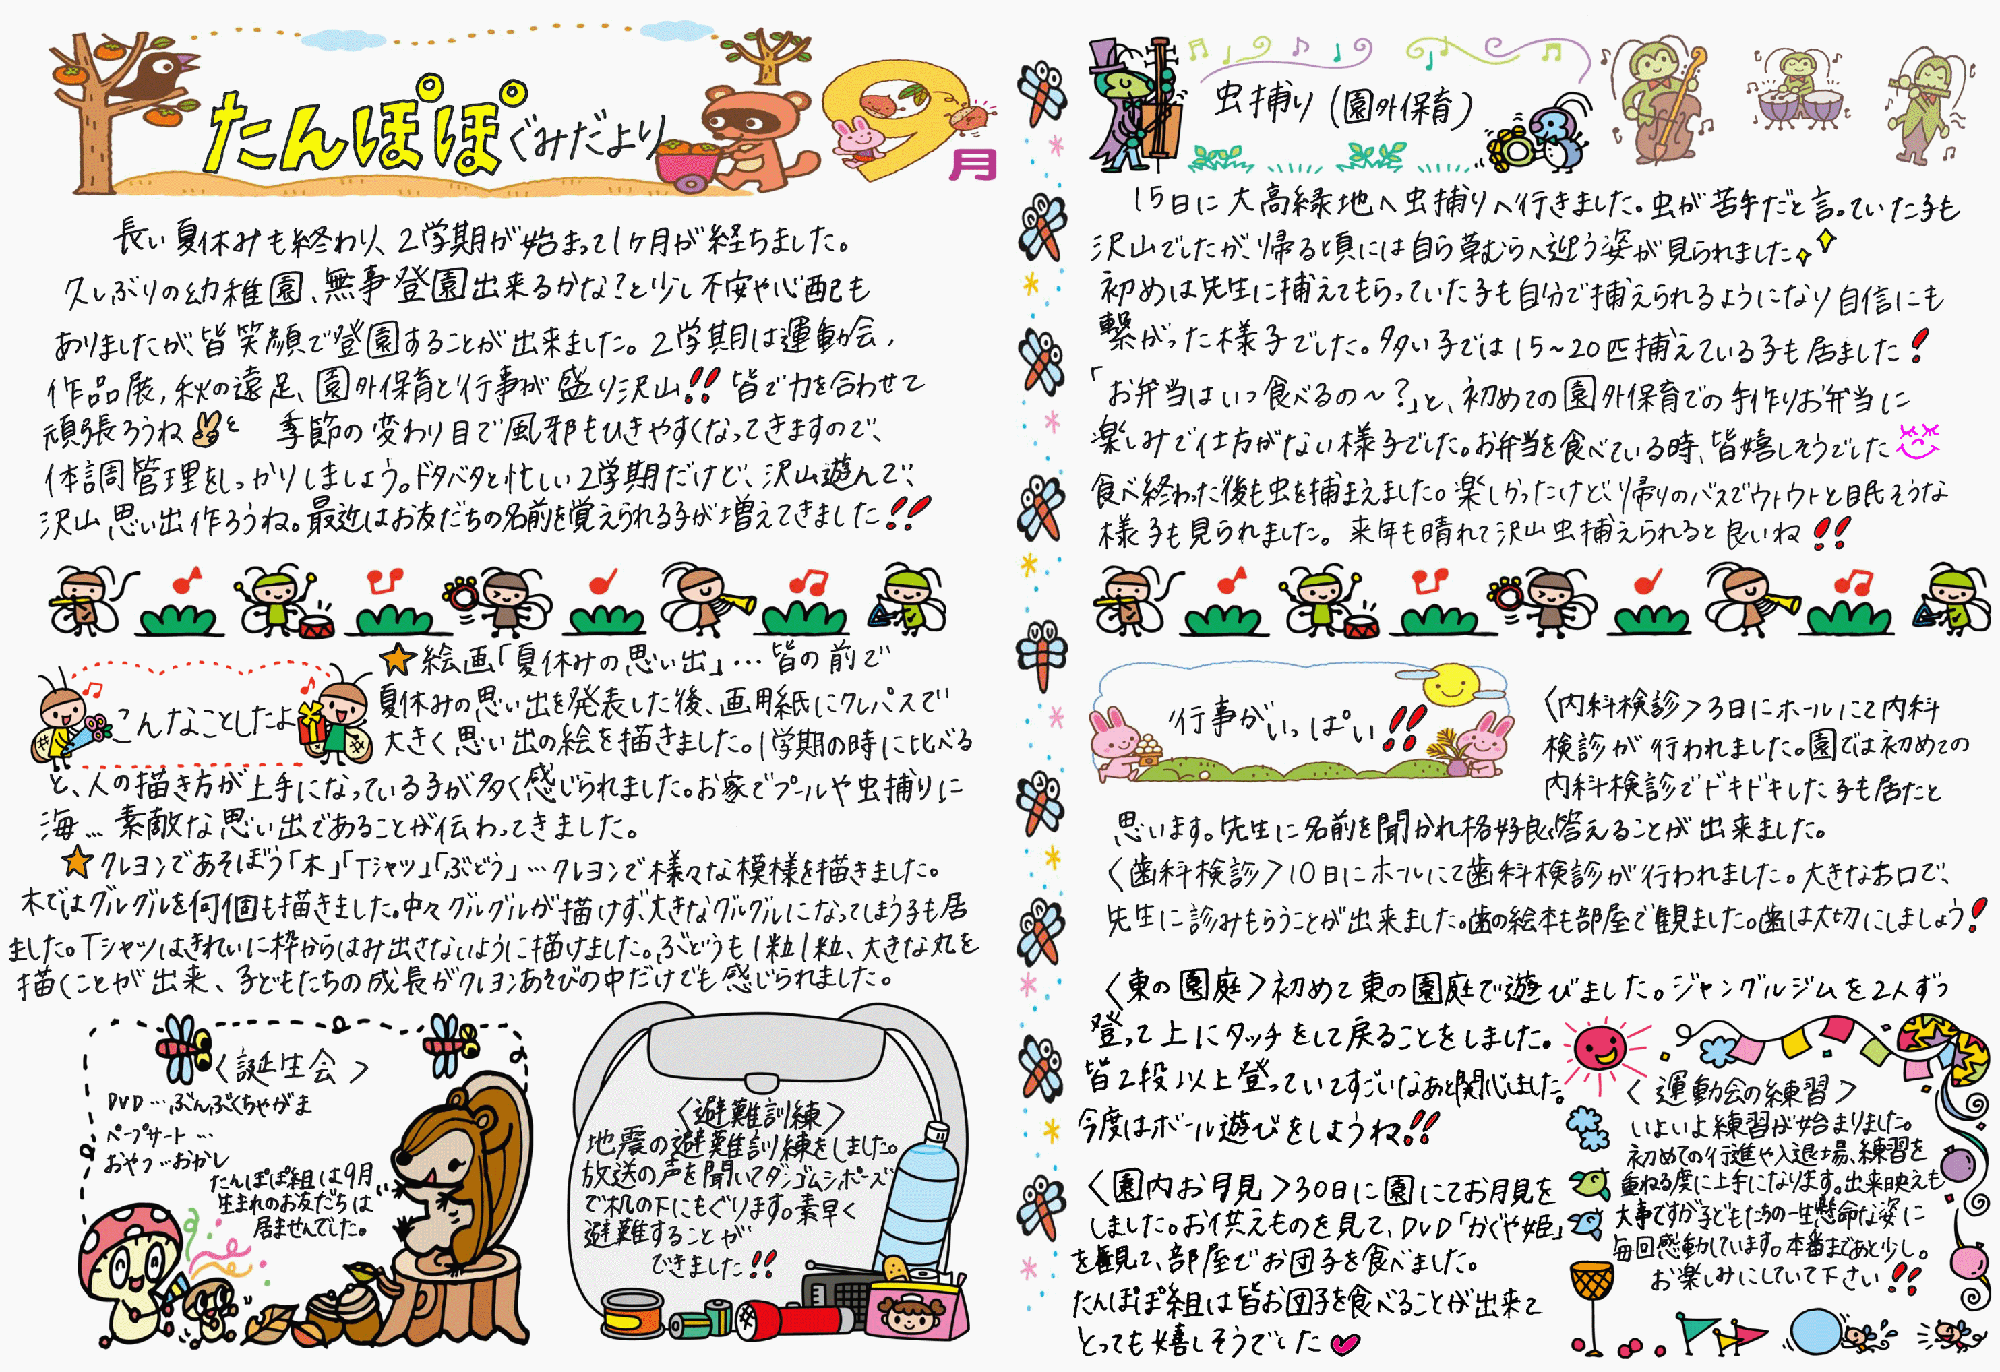 たんぽぽぐみだより
9月
長い夏休みも終わり、2学期が始まって1ヶ月が経ちました。
久しぶりの幼稚園、無事登園出来るかな?と少し不安や心配も
ありましたが、皆笑顔で登園することが出来ました。2学期は運動会、
作品展、秋の遠足、園外保育と行事が盛り沢山!! 皆で力を合わせて
頑張ろうね 季節の変わり目で風邪もひきやすくなってきますので、
体調管理をしっかりしましょう。ドタバタと忙しい2学期だけど、沢山遊んで、
沢山思い出作ろうね。最近はお友だちの名前を覚えられる子が増えてきました!!
こんなことしたよ
★絵画「夏休みの思い出」…皆の前で
夏休みの思い出を発表した後、画用紙にクレパスで
大きく思い出の絵を描きました。1学期の時に比べる
と、人の描き方が上手になっている子が多く感じられました。お家でプールや虫捕りに
海… 素敵な思い出であることが伝わってきました。
★クレヨンであそぼう「木」「Tシャツ」「ぶどう」…クレヨンで様々な模様を描きました。
木ではグルグルを何個も描きました。中々グルグルが描けず、大きなグルグルになってしまう子も居
ました。Tシャツはきれいに枠からはみ出さないように描けました。ぶどうも1粒1粒、大きな丸を
描くことが出来、子どもたちの成長がクレヨンあそびの中だけでも感じられました。
〈誕生会〉
DVD…ぶんぶくちゃがま
ペープサート…
おやつ…おかし
たんぽぽ組は9月
生まれのお友だちは
居ませんでした。
〈避難訓練〉
地震の避難訓練をしました。
放送の声を聞いてダンゴムシポーズ
で机の下にもぐります。素早く
避難することが
できました!!
虫捕り(園外保育)
15日に大高緑地へ虫捕りへ行きました。虫が苦手だと言っていた子も
沢山でしたが帰る頃には自ら草むらへ迎う姿が見られました
初めは先生に捕えてもらっていた子も自分で捕えられるようになり自信にも
繋がった様子でした。多い子では15~20匹捕えている子も居ました!
「お弁当はいつ食べるの~?」と、初めての園外保育での手作りお弁当に
楽しみで仕方がない様子でした。お弁当を食べている時、皆嬉しそうでした
食べ終わった後も虫を捕まえました。楽しかったけど、帰りのバスでウトウトと眠そうな
様子も見られました。来年も晴れて沢山虫捕えられると良いね!!
行事がいっぱい!!
〈内科検診〉3日にホールにて内科
検診が行われました。園では初めての
内科検診でドキドキした子も居たと
思います。先生に名前を聞かれ格好良く答えることが出来ました。
〈歯科検診〉10日にホールにて歯科検診が行われました。大きなお口で、
先生に診てもらうことが出来ました。歯の絵本も部屋で観ました。歯は大切にしましょう!
〈東の園庭〉初めて東の園庭で遊びました。ジャングルジムを2人ずつ
登って上にタッチをして戻ることをしました。
皆2段以上登っていてすごいなぁと関心しました。
今度はボール遊びをしようね!!
〈園内お月見〉30日に園にてお月見を
しました。お供えものを見て、DVD「かぐや姫」
を観て、部屋でお団子を食べました。
たんぽぽ組は皆お団子を食べることが出来て
とっても嬉しそうでした♥
〈運動会の練習〉
いよいよ練習が始まりました。
初めての行進や入退場、練習を
重ねる度に上手になります。出来映えも
大事ですが子どもたちの一生懸命な姿に
毎回感動しています。本番まであと少し。
お楽しみにしていて下さい!!